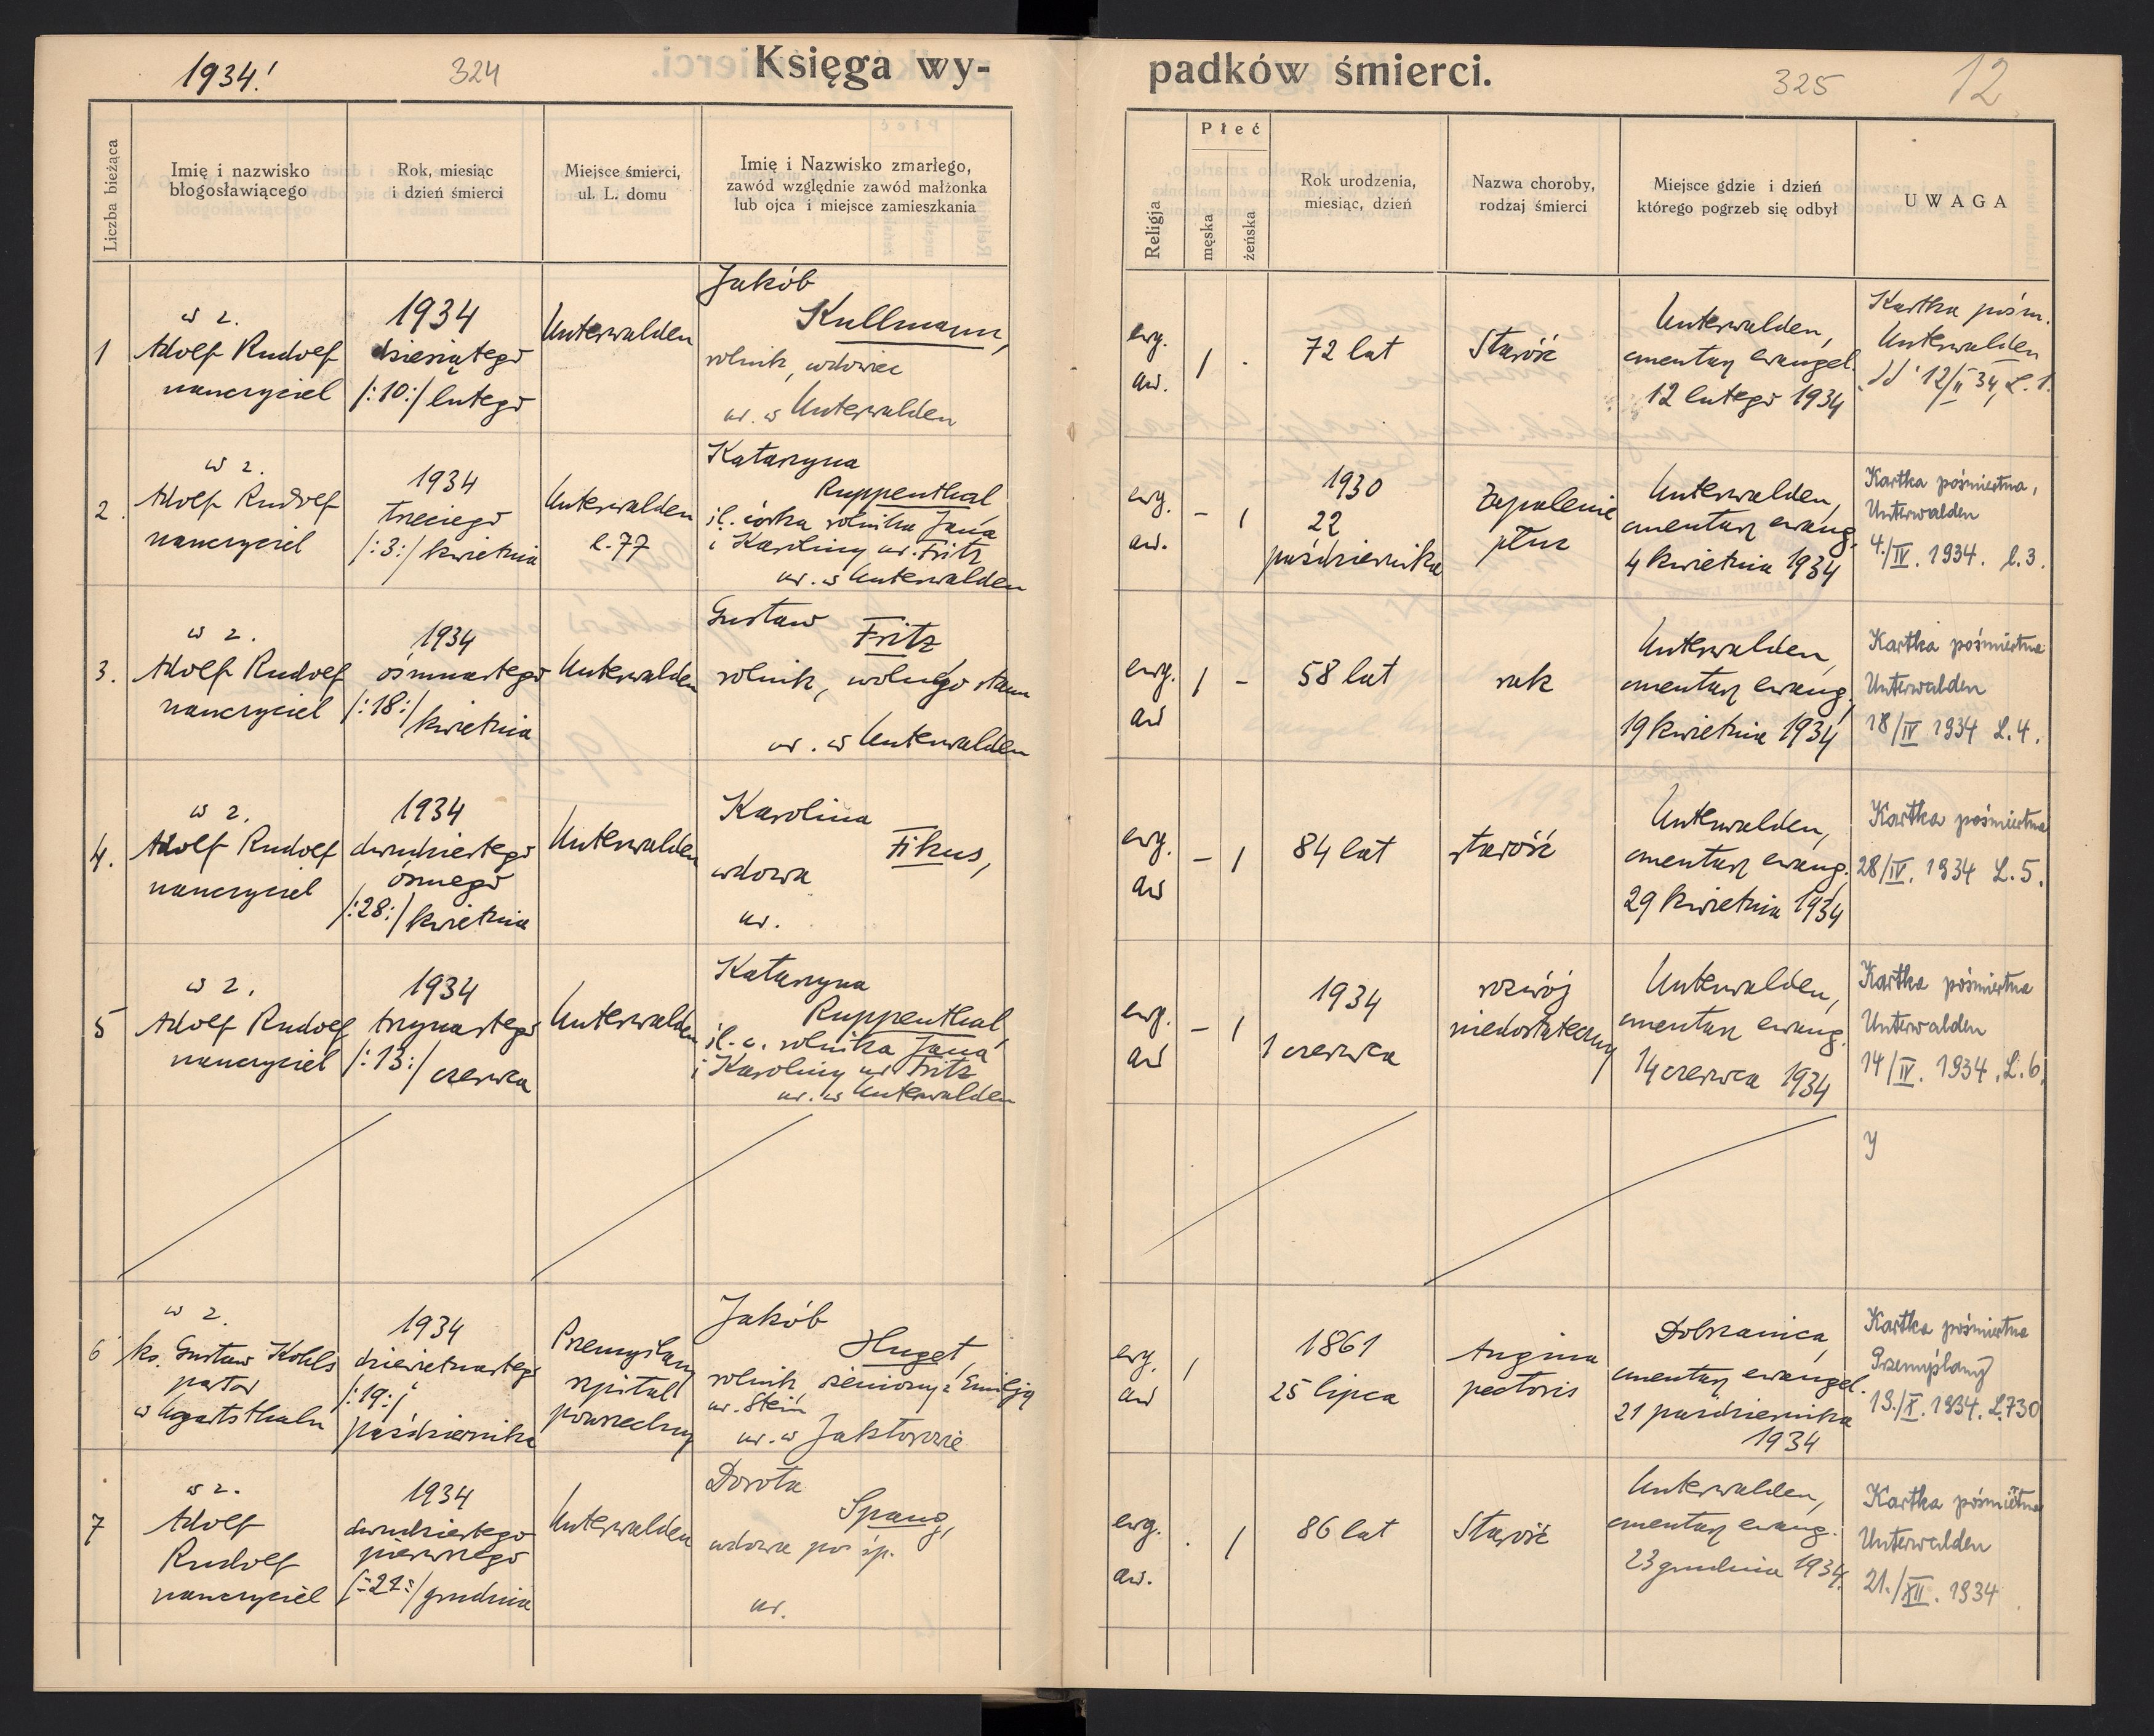 1934!
324
Księga wy-
padków śmierci.
325
12
Liczba bieżąca
Imię i nazwisko
błogosławiącego
Rok, miesiąc
i dzień śmierci
Miejsce śmierci,
ul. L. domu
Imię i Nazwisko zmarłego,
zawód względnie zawód małżonka
lub ojca i miejsce zamieszkania
Religja
Płeć
męska
żeńska
Rok urodzenia,
miesiąc, dzień
Nazwa choroby,
rodzaj śmierci
Miejsce gdzie i dzień
którego pogrzeb się odbył
UWAGA
1
w z.
Adolf Rudolf
nauczyciel
1934
dziesiątego
/:10:/ lutego
Unterwalden
Jakób
Kullmann,
rolnik, wdowiec
ur. w Unterwalden
ewg.
aw.
1 .
72 lat
Starość
Unterwalden,
cmentarz ewangel.
12 lutego 1934
Kartka pośm.
Unterwalden
dd 12/II 34, L. 1.
2.
w z.
Adolf Rudolf
nauczyciel
1934
trzeciego
/:3:/ kwietnia
Unterwalden
l. 77
Katarzyna
Ruppenthal,
śl. córka rolnika Jana
i Karoliny ur. Fritz
ur. w Unterwalden
ewg.
aw.
- 1
1930
22
października
Zapalenie
płuc
Unterwalden,
cmentarz ewang.
4 kwietnia 1934
Kartka pośmiertna,
Unterwalden
4./IV. 1934. l. 3.
3.
w z.
Adolf Rudolf
nauczyciel
1934
ośmnastego
/:18:/
kwietnia
Unterwalden
Gustaw
Fritz
rolnik, wolnego stanu
ur. w Unterwalden
ewg.
aw
1 -
58 lat
rak
Unterwalden,
cmentarz ewang.,
19 kwietnia 1934
Kartka pośmiertna
Unterwalden
18/IV 1934 L. 4.
4.
w z.
Adolf Rudolf
nauczyciel
1934
dwudziestego
ósmego
/:28:/ kwietnia
Unterwalden
Karolina
Fikus,
wdowa
ur.
ewg.
aw
- 1
84 lat
starość
Unterwalden,
cmentarz ewang.,
29 kwietnia 1934
Kartka pośmiertna
28/IV. 1934 L. 5.
5
w z.
Adolf Rudolf
nauczyciel
1934
trzynastego
/:13:/ czerwca
Unterwalden
Katarzyna
Ruppenthal,
śl. c. rolnika Jana
i Karoliny ur Fritz
ur. w Unterwalden
ewg.
aw
- 1
1934
1 czerwca
rozwój
niedostateczny
Unterwalden,
cmentarz ewang.
14 czerwca 1934
Kartka pośmiertna
Unterwalden
14/IV. 1934. L. 6.
y
6
w z.
ks. Gustaw Kohls
pastor
w Ugartsthalu
1934
dziewiętnastego
/:19:/
października
Przemyślany
szpital
powszechny
Jakób
Huget,
rolnik żeniony z Emilją
ur. Stein
ur. w Jaktorowie
ewg.
aw
1
1861
25 lipca
Angina
pectoris
Dobrzanica,
cmentarz ewangel.
21 października
1934
Kartka pośmiertna
Przemyślany
19./X. 1934. L. 730
7
w z.
Adolf
Rudolf
nauczyciel
1934
dwudziestego
pierwszego
/:21:/ grudnia
Unterwalden
Dorota
Spang,
wdowa po śp.
ur.
ewg.
aw.
. 1
86 lat
Starość
Unterwalden,
cmentarz ewang.
23 grudnia 1934.
Kartka pośmiertna
Unterwalden
21./XII. 1934